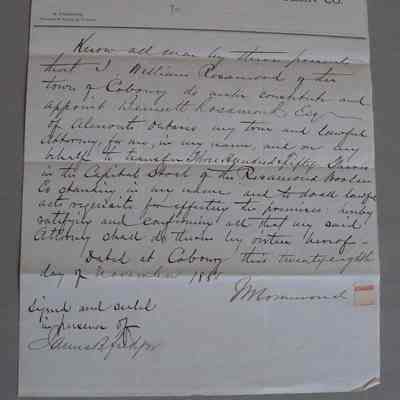 CO.
To
Know all men by these presents
that I William Rosamond of the
town of Cobourg do make constitute and
appoint Bennett Rosamond Esq
of Almonte Ontario my true and lawful
Attorney, for me, in my name, and on my
behalf to transfer Three Hundred & Fifty Shares
in the Capital Stock of the Rosamond Woolen
Co standing in my name and to do all lawful
acts requisite for effecting the premises; hereby
ratifying and confirming all that my said
Attorney shall do therein by virtue hereof -
Dated at Cobourg this twenty eighth
day of November 188
Rosamond
Signed and sealed
in presence of
James